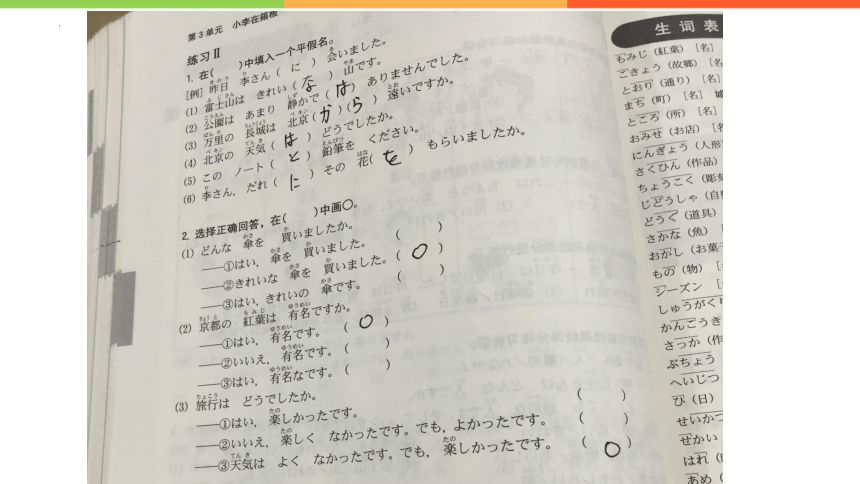 第3单元 小李在箱根
练习Ⅱ
1. 在( )中填入一个平假名。
[例] 昨日 李さん ( に ) 会いました。
(1) 富士山は きれい ( な ) 山です。
(2) 公園は あまり 静かで ( は ) ありませんでした。
(3) 万里の 長城は 北京 (か)(ら) 遠いですか。
(4) 北京の 天気 ( は ) どうでしたか。
(5) この ノート ( と ) 鉛筆を ください。
(6) 李さん, だれ ( に ) その 花( を ) もらいましたか。
2. 选择正确回答，在( )中画〇。
(1) どんな 傘を 買いましたか。
——①はい, 傘を 買いました。 ( )
——②きれいな 傘を 買いました。 (〇)
——③はい, きれいの 傘です。 ( )
(2) 京都の 紅葉は 有名ですか。
——①はい, 有名です。 (〇)
——②いいえ, 有名です。 ( )
——③はい, 有名なです。 ( )
(3) 旅行は どうでしたか。
——①はい, 楽しかったです。 ( )
——②いいえ, 楽しく なかったです。でも, よかったです。 ( )
——③天気は よく なかったです。でも, 楽しかったです。 (〇)
生 词 表
もみじ (紅葉) [名]
こきょう (故郷) [名]
とおり (通り) [名]
まち (町) [名] 城
ところ (所) [名]
おみせ (お店) [名
にんぎょう (人形
さくひん (作品)
ちょうこく (彫刻
じどうしゃ (自
どうぐ (道具)
さかな (魚)
おかし (お菓
もの (物)
シーズン
しゅうがく
かんこうき
さっか (作
ぶちょう
へいじつ
ひ (日)
せいかつ
せかい
はれ
あめ